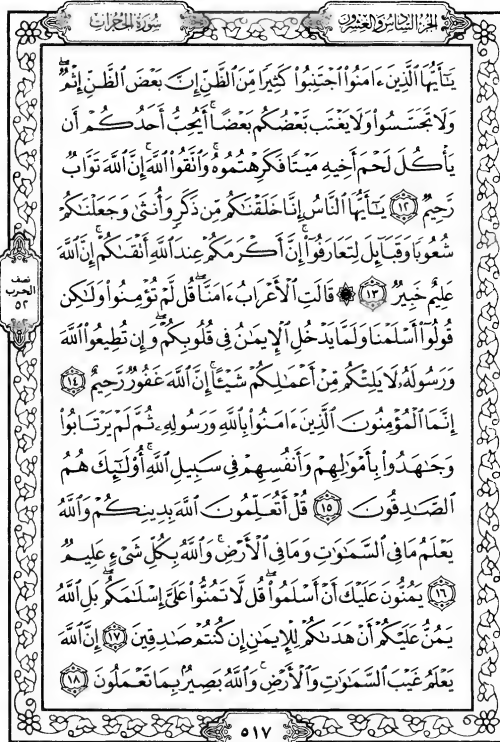 الجزء السادس والعشرون
سورة الحجرات
يَٰٓأَيُّهَا ٱلَّذِينَ ءَامَنُوا۟ ٱجْتَنِبُوا۟ كَثِيرًا مِّنَ ٱلظَّنِّ إِنَّ بَعْضَ ٱلظَّنِّ إِثْمٌ ۖ
وَلَا تَجَسَّسُوا۟ وَلَا يَغْتَب بَّعْضُكُم بَعْضًا ۚ أَيُحِبُّ أَحَدُكُمْ أَن
يَأْكُلَ لَحْمَ أَخِيهِ مَيْتًا فَكَرِهْتُمُوهُ ۚ وَٱتَّقُوا۟ ٱللَّهَ ۚ إِنَّ ٱللَّهَ تَوَّابٌ
رَّحِيمٌ ١٢ يَٰٓأَيُّهَا ٱلنَّاسُ إِنَّا خَلَقْنَٰكُم مِّن ذَكَرٍ وَأُنثَىٰ وَجَعَلْنَٰكُمْ
شُعُوبًا وَقَبَآئِلَ لِتَعَارَفُوٓا۟ ۚ إِنَّ أَكْرَمَكُمْ عِندَ ٱللَّهِ أَتْقَىٰكُمْ ۚ إِنَّ ٱللَّهَ
عَلِيمٌ خَبِيرٌ ١٣ ۞ قَالَتِ ٱلْأَعْرَابُ ءَامَنَّا ۖ قُل لَّمْ تُؤْمِنُوا۟ وَلَٰكِن
قُولُوٓا۟ أَسْلَمْنَا وَلَمَّا يَدْخُلِ ٱلْإِيمَٰنُ فِى قُلُوبِكُمْ ۖ وَإِن تُطِيعُوا۟ ٱللَّهَ
وَرَسُولَهُۥ لَا يَلِتْكُم مِّنْ أَعْمَٰلِكُمْ شَيْـًٔا ۚ إِنَّ ٱللَّهَ غَفُورٌ رَّحِيمٌ ١٤
إِنَّمَا ٱلْمُؤْمِنُونَ ٱلَّذِينَ ءَامَنُوا۟ بِٱللَّهِ وَرَسُولِهِۦ ثُمَّ لَمْ يَرْتَابُوا۟
وَجَٰهَدُوا۟ بِأَمْوَٰلِهِمْ وَأَنفُسِهِمْ فِى سَبِيلِ ٱللَّهِ ۚ أُو۟لَٰٓئِكَ هُمُ
ٱلصَّٰدِقُونَ ١٥ قُلْ أَتُعَلِّمُونَ ٱللَّهَ بِدِينِكُمْ وَٱللَّهُ
يَعْلَمُ مَا فِى ٱلسَّمَٰوَٰتِ وَمَا فِى ٱلْأَرْضِ ۚ وَٱللَّهُ بِكُلِّ شَىْءٍ عَلِيمٌ
١٦ يَمُنُّونَ عَلَيْكَ أَنْ أَسْلَمُوا۟ ۖ قُل لَّا تَمُنُّوا۟ عَلَىَّ إِسْلَٰمَكُم ۖ بَلِ ٱللَّهُ
يَمُنُّ عَلَيْكُمْ أَنْ هَدَىٰكُمْ لِلْإِيمَٰنِ إِن كُنتُمْ صَٰدِقِينَ ١٧ إِنَّ ٱللَّهَ
يَعْلَمُ غَيْبَ ٱلسَّمَٰوَٰتِ وَٱلْأَرْضِ ۚ وَٱللَّهُ بَصِيرٌۢ بِمَا تَعْمَلُونَ ١٨
نصف
الحزب
٥٢
٥١٧